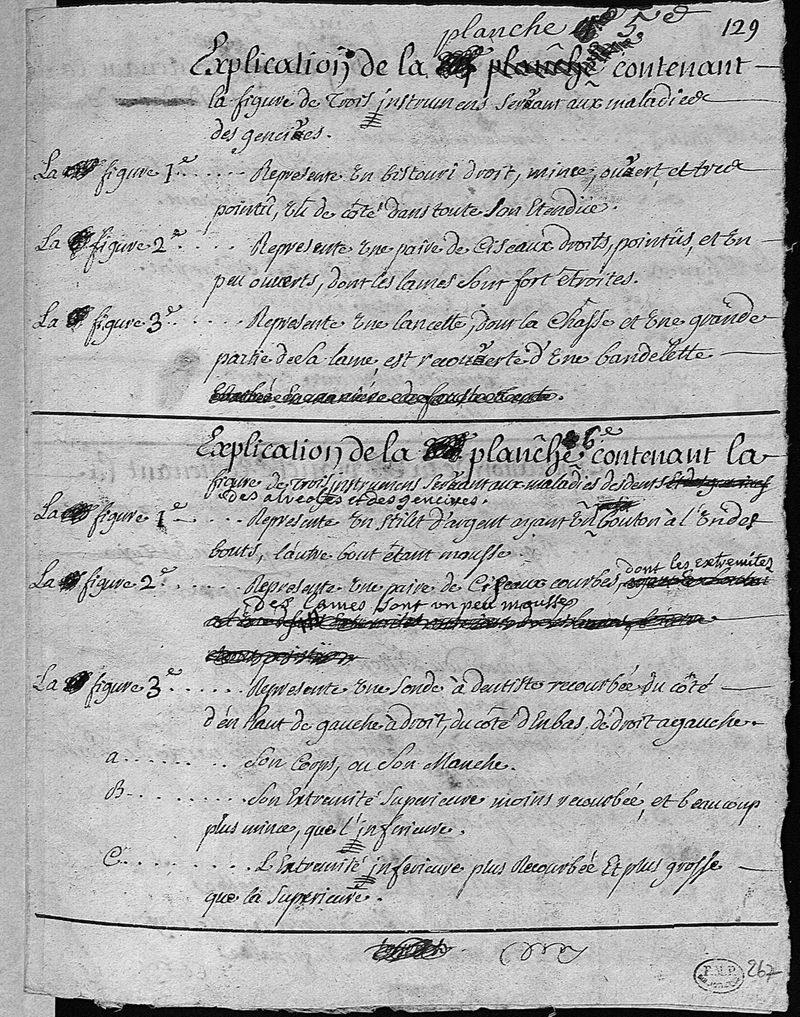 planche 5e
129
Explication de la planche contenant
la figure de Trois instrumens servant aux maladies
des gencives.
La figure 1e ...... Represente un bistouri droit, mince, ouvert, et tres
pointû, vû de côté dans toute son Etendüe.
La figure 2e ..... Represente une paire de Ciseaux droits, pointûs, et un
peu ouverts, dont les lames sont fort Etroites.
La figure 3e ..... Represente une lancette, dont la Chasse et une grande
partie de la lame, est recouverte d'une bandelette
Explication de la planche 6e contenant la
figure de Trois instrumens servant aux maladies des dents
des alveoles et des gencives.
La figure 1e ..... Represente un stilet d'argent ayant un bouton à l'un des
bouts, l'autre bout étant mousse.
dont les extremitez
La figure 2e ...... Represente une paire de Ciseaux courbes,
des lames sont un peu mousses
La figure 3e ...... Represente une sonde à dentiste recourbée du côté
d'en haut de gauche à droit, du côté d'en bas, de droit a gauche.
a ........ Son Corps, ou Son Manche.
B ........ Son Extremité Superieure moins recourbée, et beaucoup
plus mince, que l'inferieure.
C ........ L'Extremité inferieure plus Recourbée Et plus grosse
que la Superieure.
267